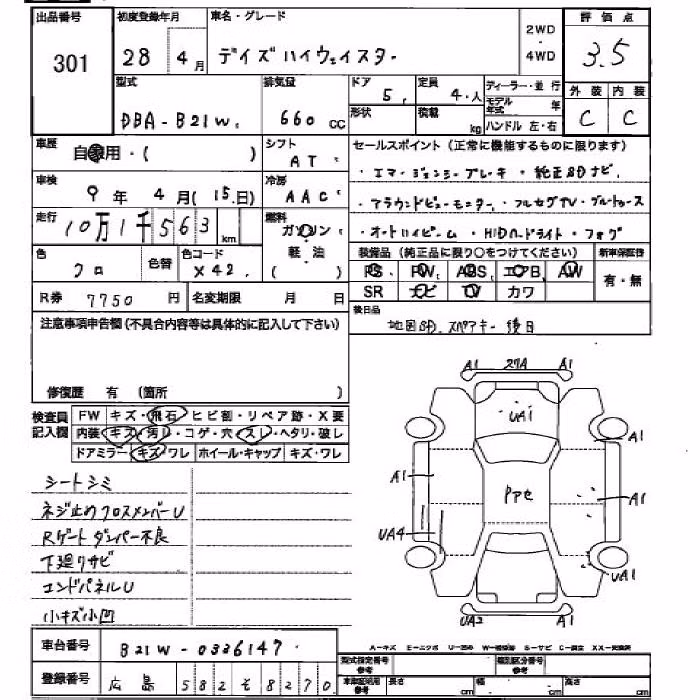 出品番号 初度登録年月 車名・グレード 2WD・4WD 評価点
301 28年 4月 デイズハイウェイスター 3.5
型式 排気量 ドア 定員 ディーラー・並行 外装 内装
DBA-B21W 660cc 5 4人 モデル年式 年 C C
形状 積載 kg ハンドル 左・右
車歴 自家用・( ) シフト AT セールスポイント(正常に機能するものに限ります)
・エマージェンシーブレーキ ・純正SDナビ
車検 9年 4月(15日) 冷房 AAC ・アラウンドビューモニター ・フルセグTV・ブルートゥース
走行 10万1千563km 燃料 ガソリン 軽油 ( ) ・オートハイビーム ・HIDヘッドライト・フォグ
色 クロ 色替 色コード X42 装備品(純正品に限り○をつけてください) 新車保証書
PS PW ABS エアB AW 有・無
R券 7750円 名変期限 月 日 SR ナビ TV カワ
注意事項申告欄(不具合内容等は具体的に記入して下さい) 後日品
地図SD.スペアキー後日
修復歴 有 (箇所 )
検査員記入欄 FW キズ・飛石・ヒビ割・リペア跡・X要
内装・キズ・汚れ・コゲ・穴・スレ・ヘタリ・破レ
ドアミラー・キズ・ワレ ホイール・キャップ・キズ・ワレ
シートシミ
ネジ止めクロスメンバーU
Rゲートダンパー不良
下廻りサビ
エンドパネルU
小キズ小凹
A1 27A A1
UA1
A1
A1 PPC A1
UA4
UA1
UA2 A1
車台番号 B21W-0326147
登録番号 広島 582 そ 8270
型式指定番号 参考 類別区分番号 参考
長さ cm 幅 cm 高さ cm